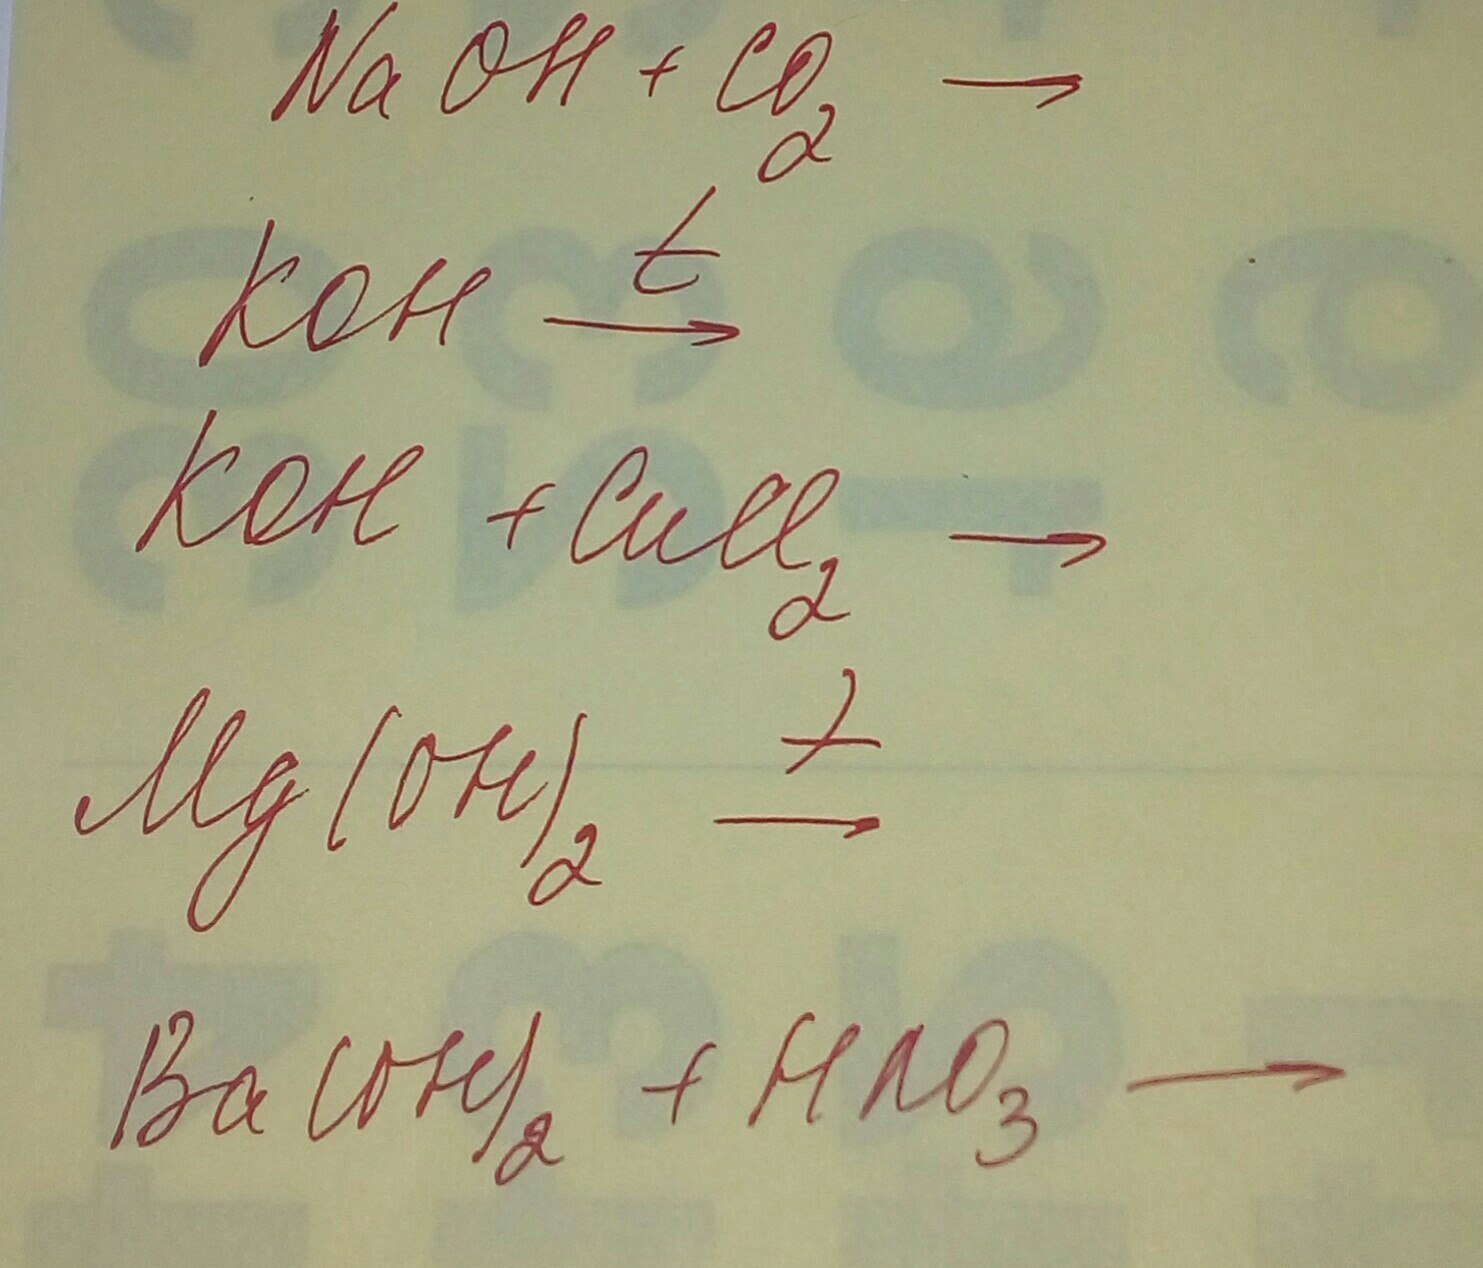 NaOH + CO₂ →
KOH t→
KOH + CuCl₂ →
Mg(OH)₂ t→
Ba(OH)₂ + HNO₃ →